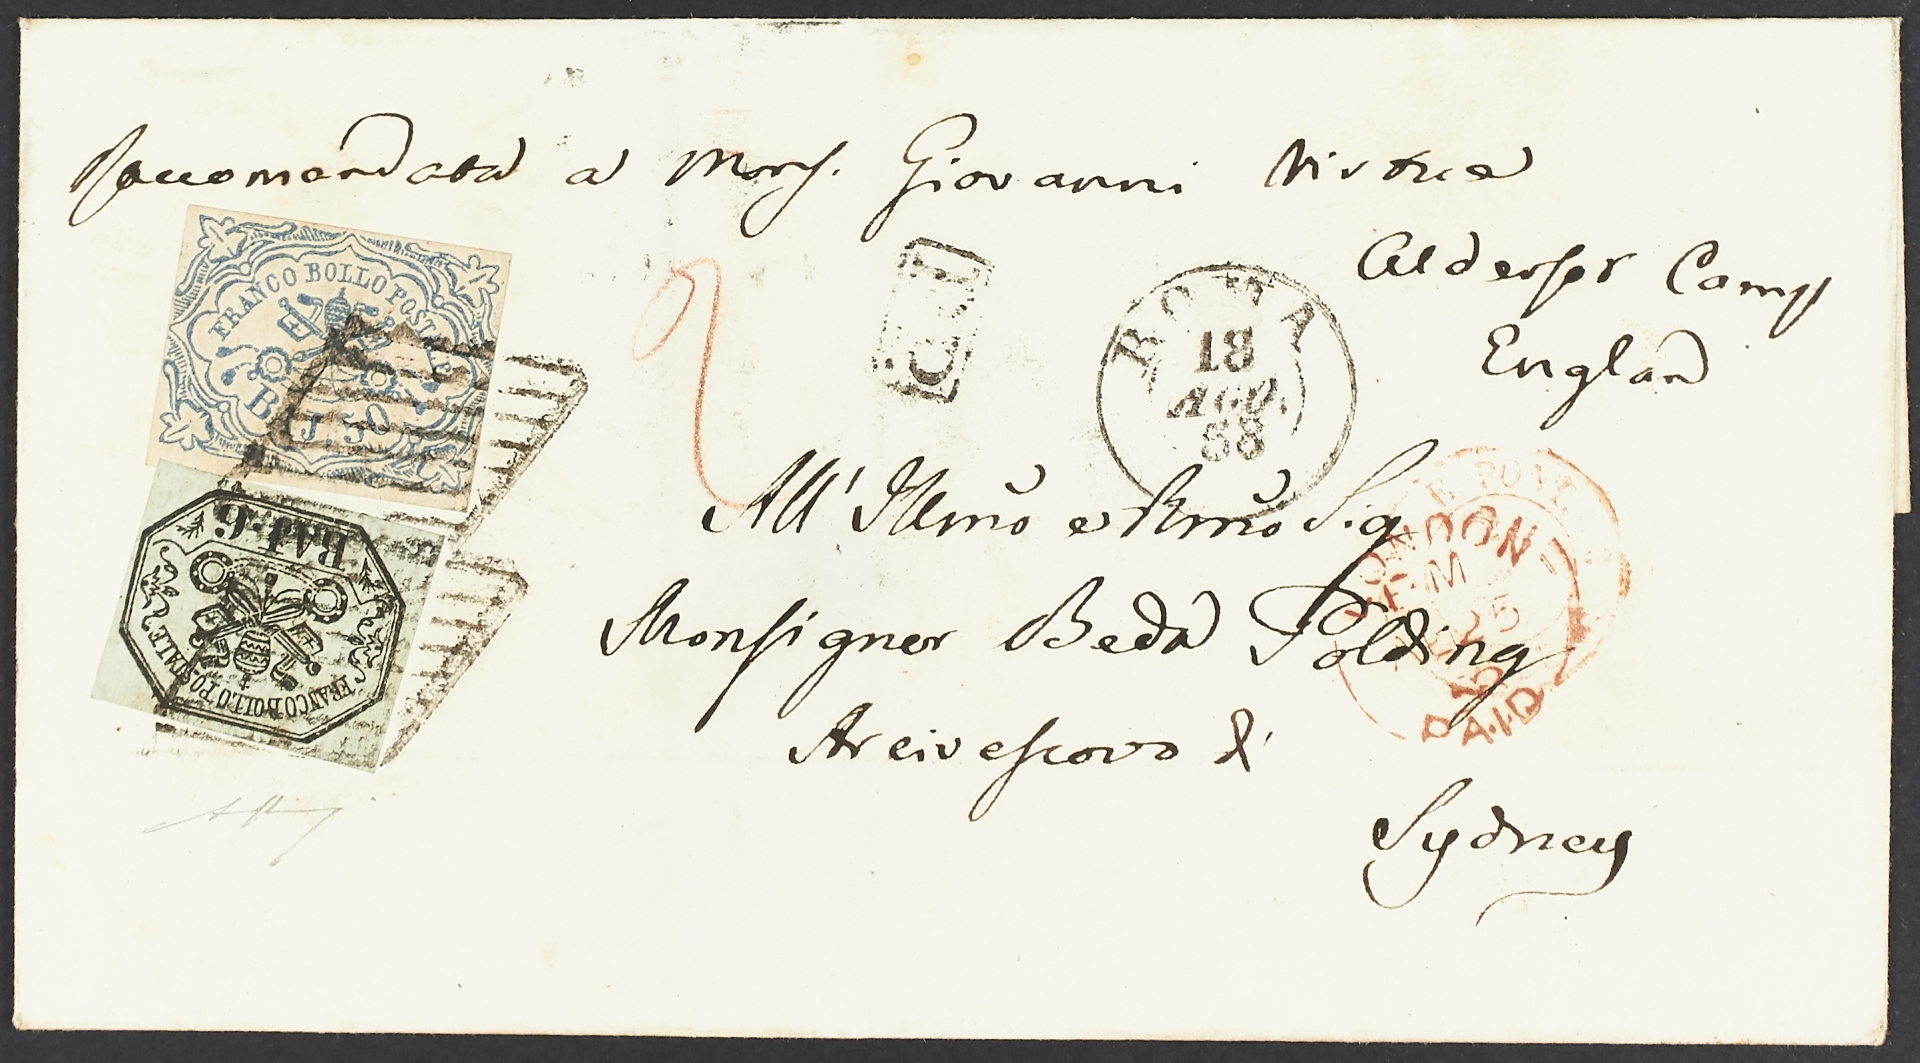 Raccomandata a Mons. Giovanni
Aldersot Camp
England
FRANCO BOLLO POSTALE
BAJ. 50
BAJ. 6
FRANCO BOLLO POSTALE
2
P.D.
ROMA
18
AGO.
58
All' Illmo e Rmo Sig
Monsignor Beda Polding
Arcivescovo di
Sydney
LONDON
25
PAID